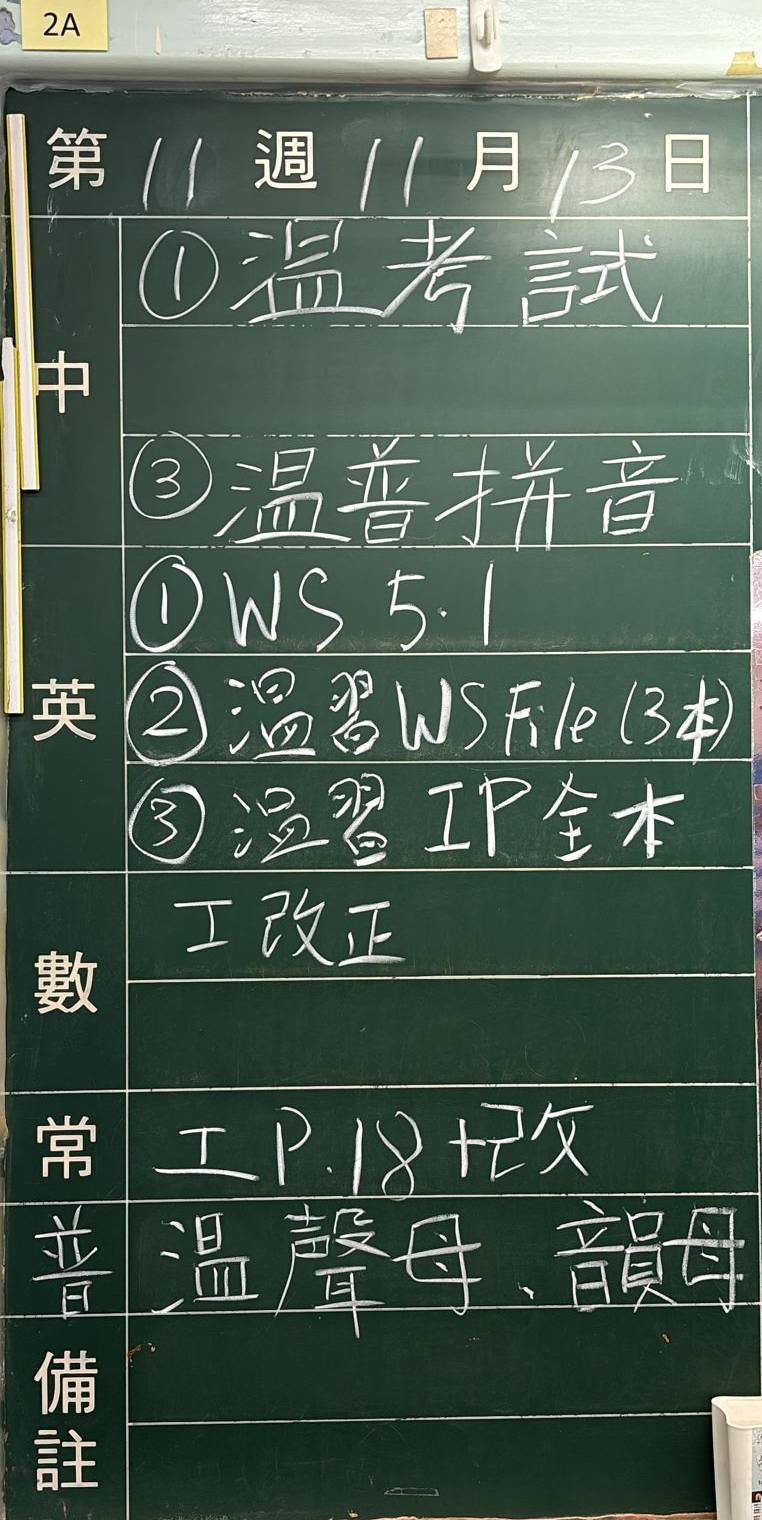 2A
第 11 週 11 月 13 日
中
① 温考試
③ 温普拼音
英
① WS 5.1
② 温習 WS File (3本)
③ 温習 IP 全本
數
工改正
常
工 P.18 +改
普
温聲母、韻母
備註